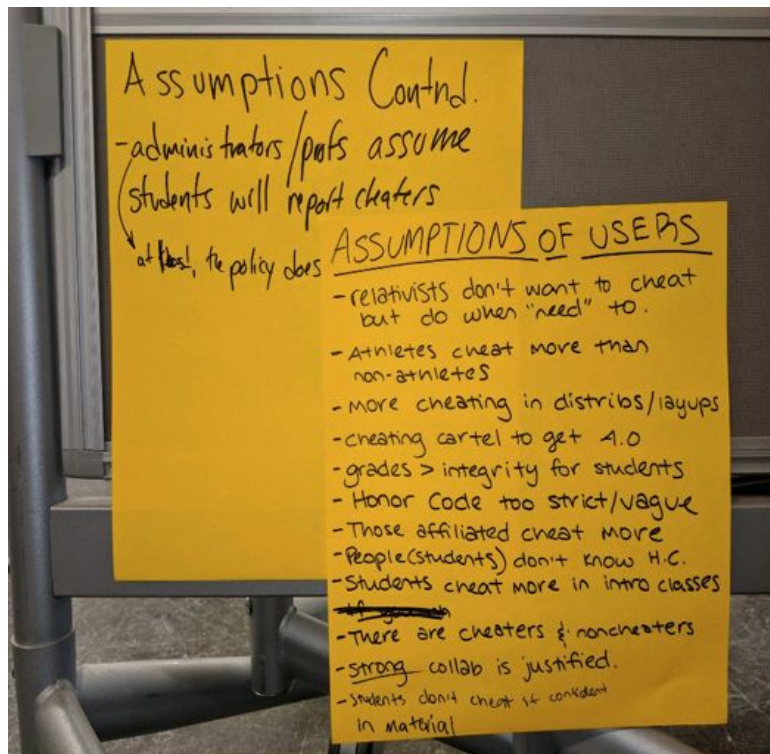 Assumptions Contnd.
- administrators/profs assume
students will report cheaters
at , the policy does
ASSUMPTIONS OF USERS
- relativists don't want to cheat
but do when "need" to.
- Athletes cheat more than
non-athletes
- More cheating in distribs/layups
- cheating cartel to get 4.0
- grades > integrity for students
- Honor Code too strict/vague
- Those affiliated cheat more
- People (students) don't know H.C.
- Students cheat more in intro classes
- There are cheaters & noncheaters
- strong collab is justified.
- Students don't cheat if confident
in material